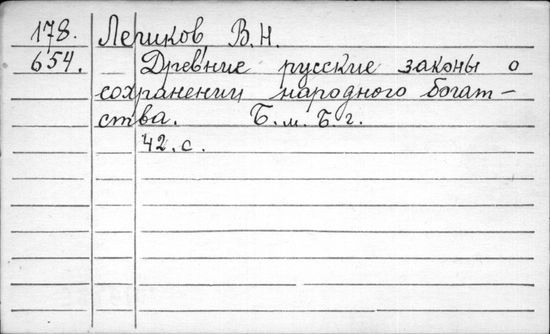 178. Лешков В.Н.
654. Древние русские законы о
сохранении народного богат-
ства. Б.м. Б.г.
42.с.